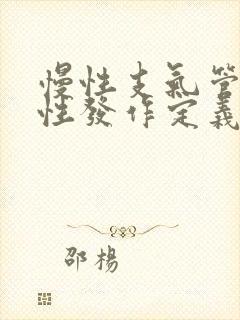 慢性支氣管
性發作定義
邵楊